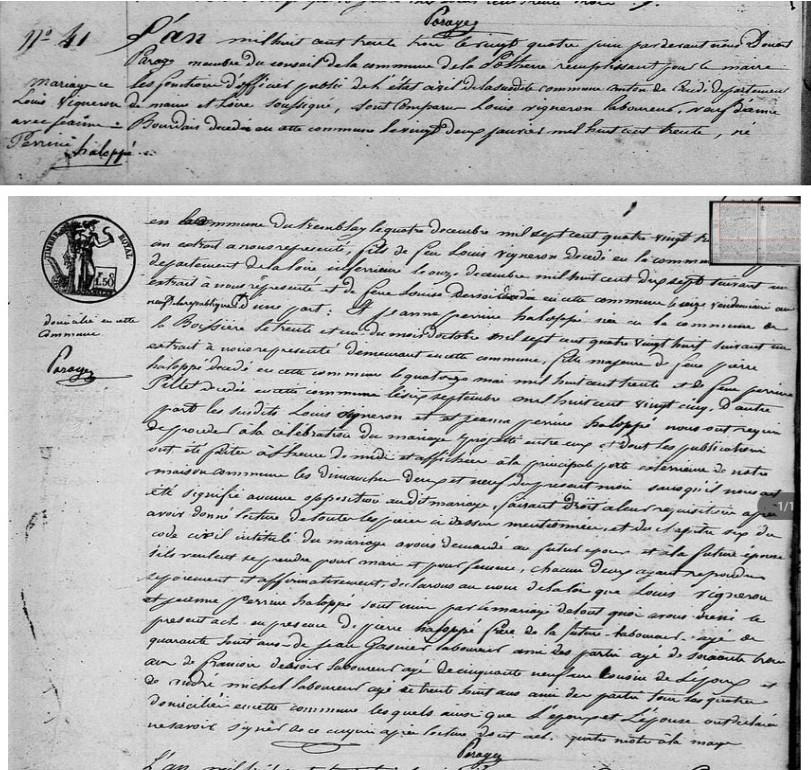 Parage
N° 41 L'an mil huit cent trente trois le vingt quatre juin par devant nous Douet
Parage membre du conseil de la commune de la remplissant pour le maire
mariage de les fonctions d'officier public de l'état civil de la susdite commune canton de Candé departement
Louis Vigneron de maine et Loire soussigné, sont comparu Louis vigneron laboureur, veuf d'anne
avec jeanne Bourdais decedée en cette commune le vingt deux janvier mil huit cent trente, né
Perrine
haloppé
en la commune du tremblay le quatre decembre mil sept cent quatre vingt
un extrait a nous representé, fils de feu Louis vigneron decedé en la commune
departement de la loire inferieure le onze decembre mil huit cent dix sept suivant un
extrait a nous representé et de feue Louise decedée en cette commune le seize vendemiaire an
neuf d'une part : Et jeanne perrine haloppé née en la commune de
la Boissiere le trente et un du mois d'octobre mil sept cent quatre vingt huit suivant un
extrait a nous representé demeurant en cette commune, fille majeure de feu pierre
haloppé decedé en cette commune le quatorze mai mil huit cent trente et de feue perrine
Pellet decedée en cette commune le six septembre mil huit cent vingt cinq, d'autre
part les susdits Louis vigneron et jeanne perrine haloppé nous ont requis
de proceder à la célébration du mariage projetté entre eux et dont les publications
ont été faites à l'heure de midi et affichées à la principal porte exterieure de notre
maison commune les dimanches deux et neuf du present mois sans qu'il nous ait
été signifié aucune opposition audit mariage, faisant droit a leur requisitoire après
avoir donné lecture de toutes les pieces ci dessus mentionnées, et du chapitre six du
code civil intitulé du mariage avons demandé au futur epoux et à la future épouse
s'ils veulent se prendre pour mari et pour femme, chacun d'eux ayant repondu
separement et affirmativement, declarons au nom de la loi que Louis vigneron
et jeanne perrine haloppé sont unis par le mariage de tout quoi avons dressé le
present acte en presence de pierre haloppé frère de la future laboureur agé de
quarante ans de jean Gasnier laboureur ami des partis ayé de soixante trois
ans de francois laboureur agé de cinquante neuf ans cousin de l'epoux et
de michel laboureur agé de trente huit ans ami des partis tous les quatre
domiciliés en cette commune lesquels ainsi que l'epoux et l'épouse ont déclaré
ne savoir signer de ce enquis après lecture dont acte
Parage
TIMBRE ROYAL
domicilié en cette
commune
Parage
-1/1
L'an